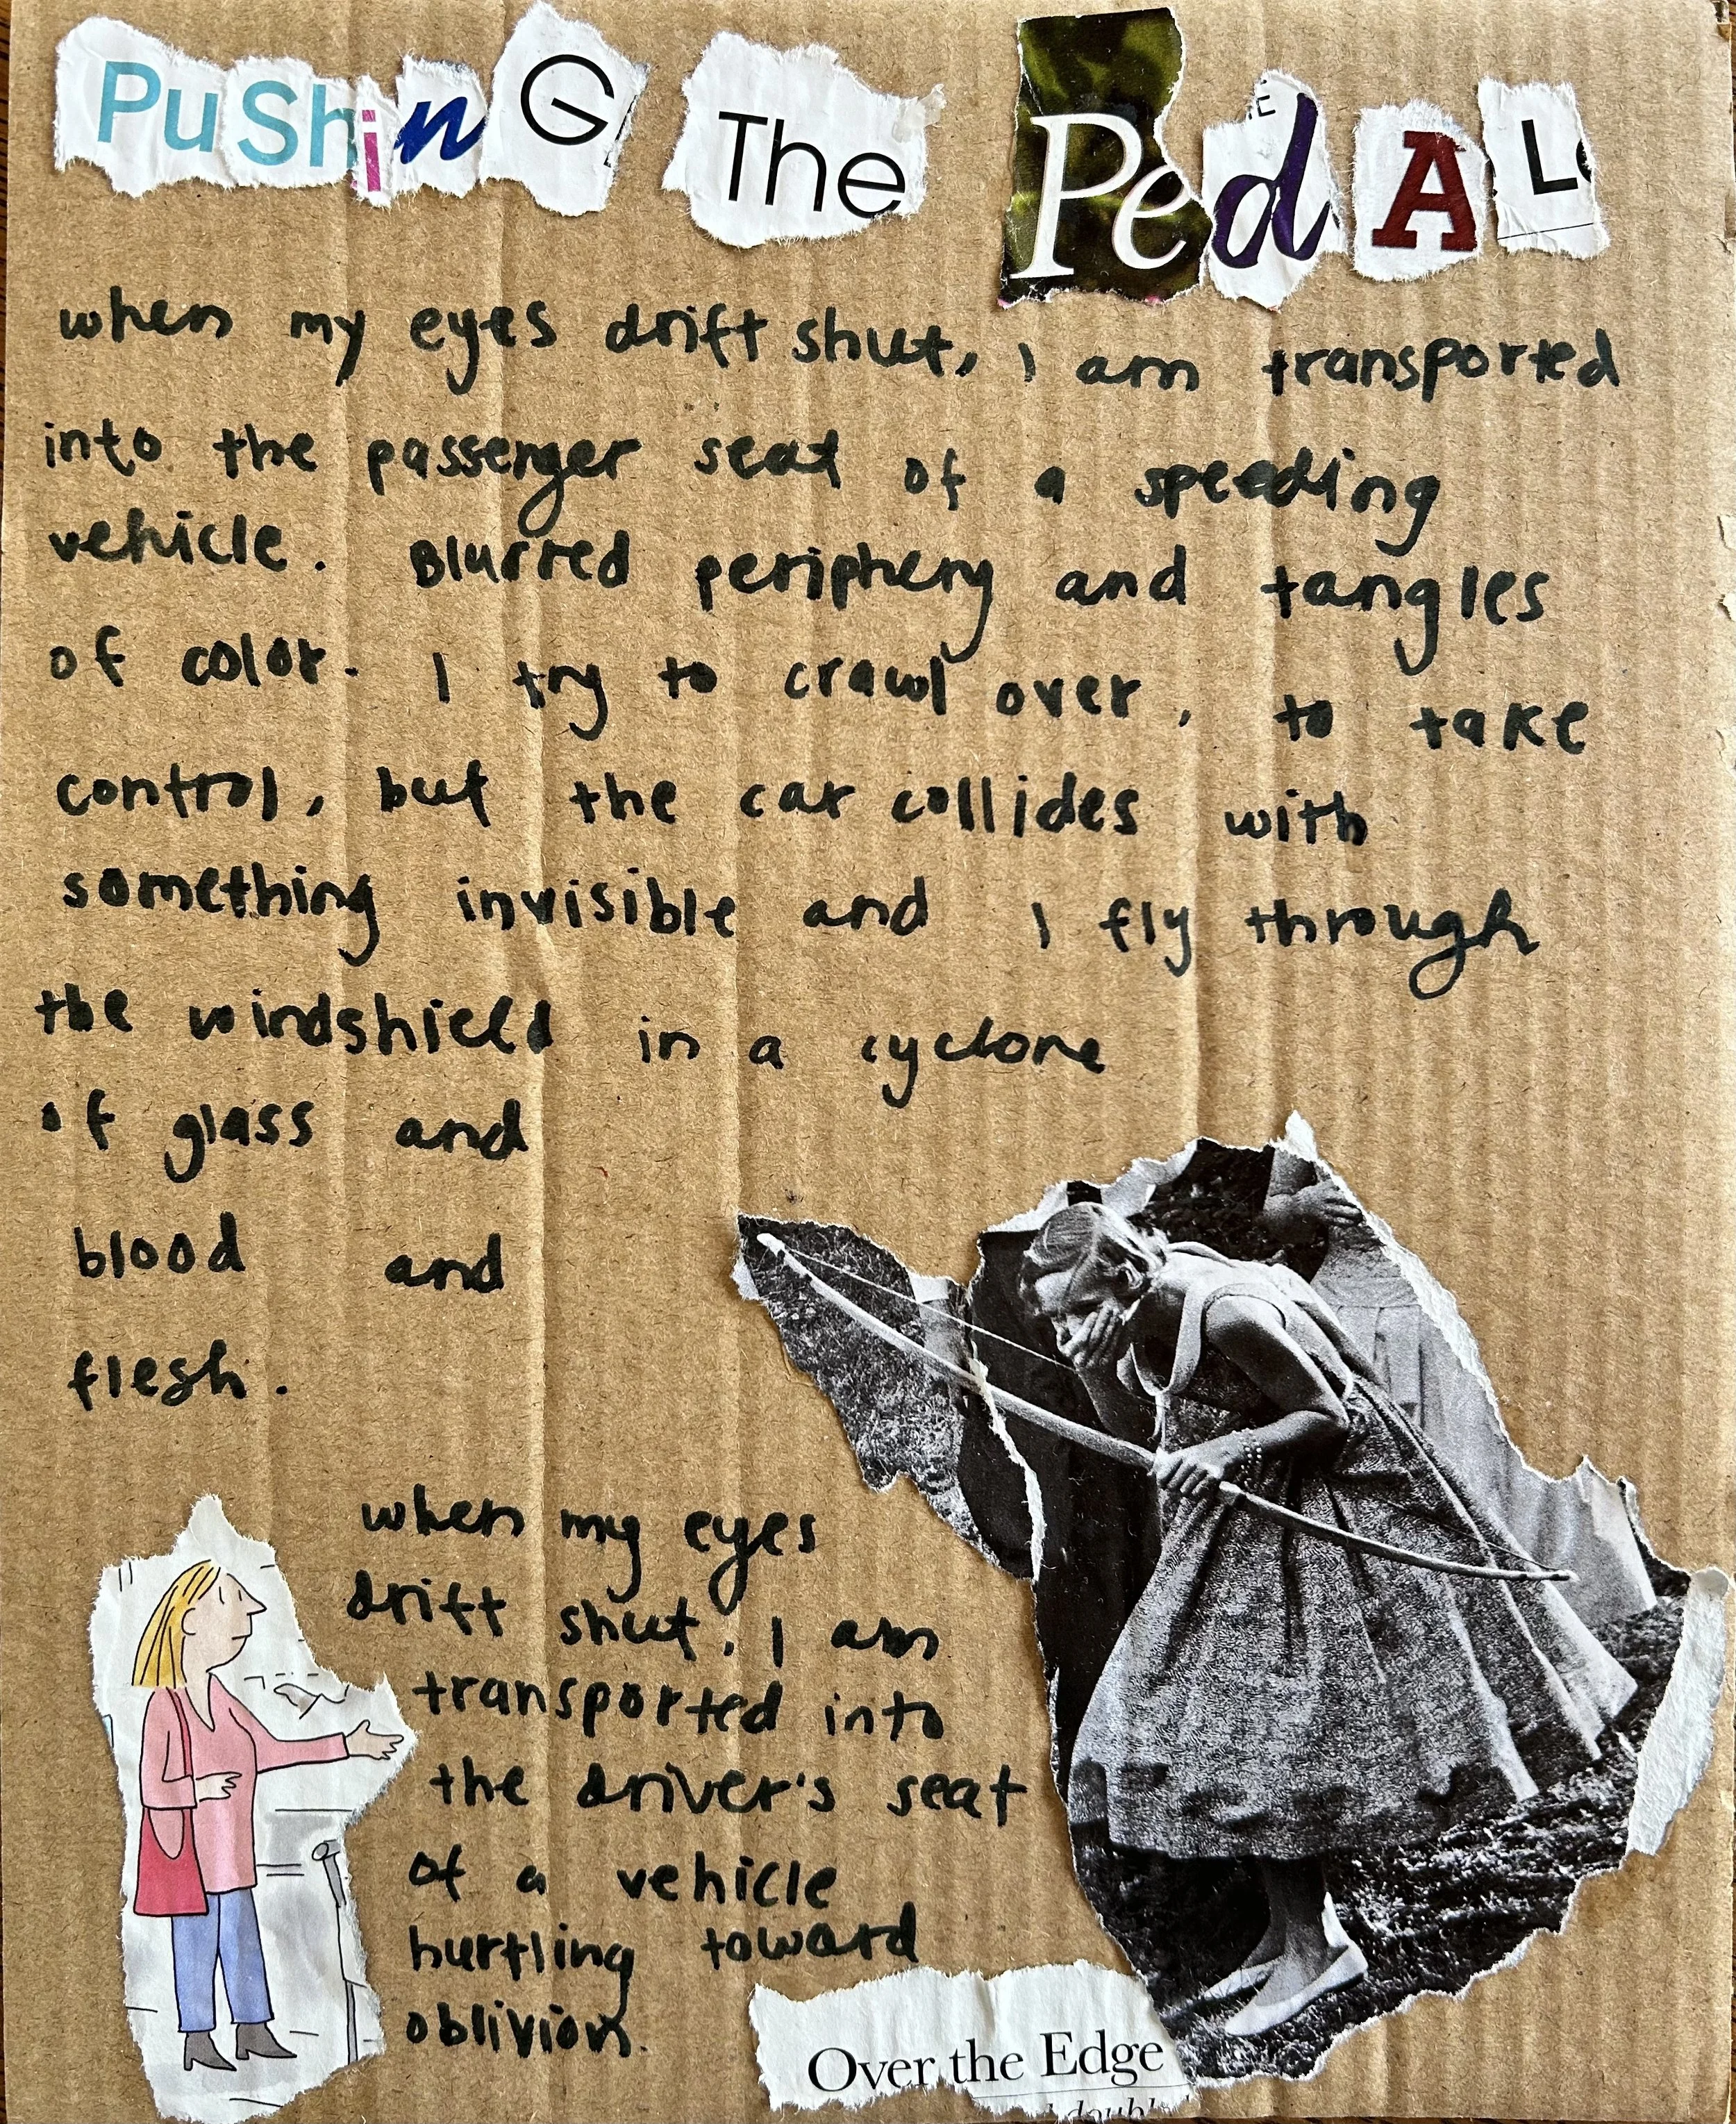 PuShinG The PedAL
when my eyes drift shut, I am transported
into the passenger seat of a speeding
vehicle. Blurred periphery and tangles
of color. I try to crawl over, to take
control, but the car collides with
something invisible and I fly through
the windshield in a cyclone
of glass and
blood and
flesh.
when my eyes
drift shut, I am
transported into
the driver's seat
of a vehicle
hurtling toward
oblivion.
Over the Edge